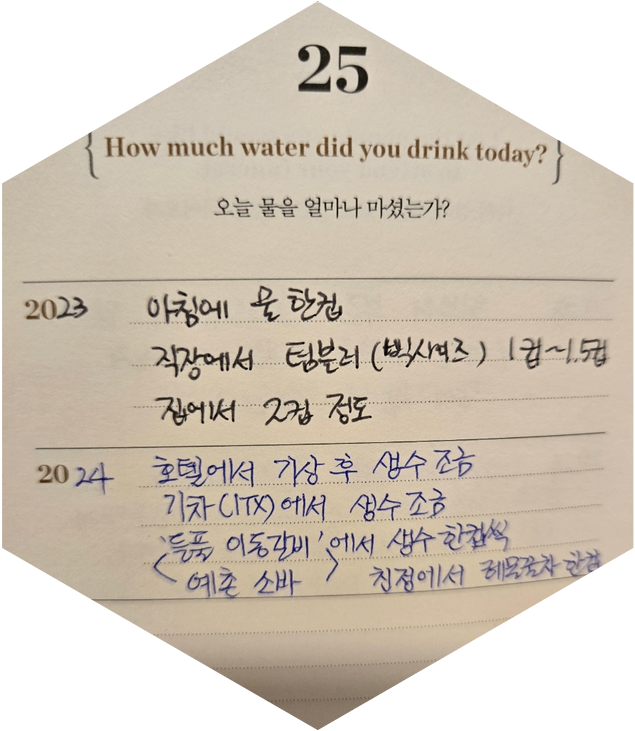 25
{ How much water did you drink today? }
오늘 물을 얼마나 마셨는가?
2023 아침에 물 한컵
직장에서 텀블러 (빅사이즈) 1컵~1.5컵
집에서 2컵 정도
2024 호텔에서 기상 후 생수 조금
기차(ITX)에서 생수 조금
이동갈비'에서 생수 한컵씩
예촌 소바 친정에서 레몬꿀차 한컵